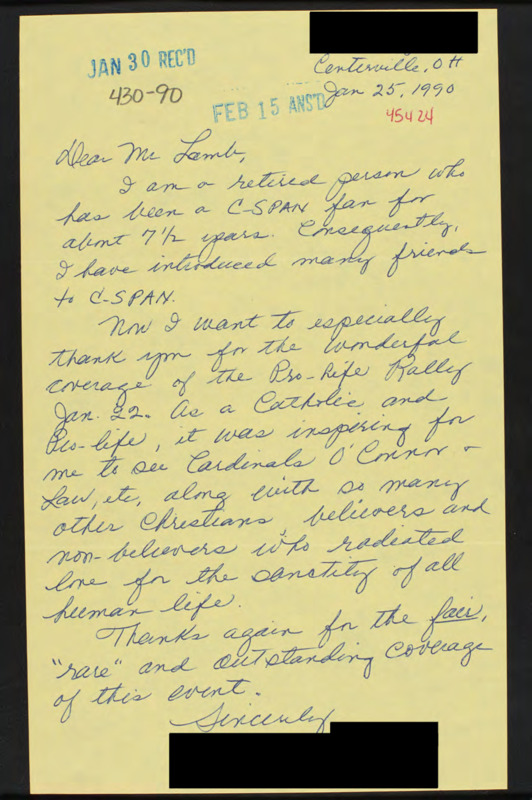 JAN 30 REC'D
430-90
FEB 15 ANS'D
Centerville, OH
Jan 25, 1990
45424
Dear Mr Lamb,
I am a retired person who
has been a C-SPAN fan for
about 7 1/2 years. Consequently,
I have introduced many friends
to C-SPAN.
Now I want to especially
thank you for the wonderful
coverage of the Pro-Life Rally
Jan. 22. As a Catholic and
Pro-life, it was inspiring for
me to see Cardinals O'Connor +
Law, etc, along with so many
other Christians, believers and
non-believers who radiated
love for the sanctity of all
human life.
Thanks again for the fair,
"rare" and outstanding coverage
of this event.
Sincerely